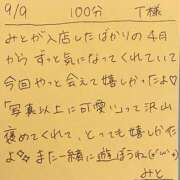 9/9 100分 T様
みとが入店したばかりの4月
からずっと気になってくれていて
今回やっと会えて嬉しかったよ♡
「写真以上に可愛い」って沢山
褒めてくれて、とっても嬉しかった
よ また一緒に遊ぼうね(^^)
みと